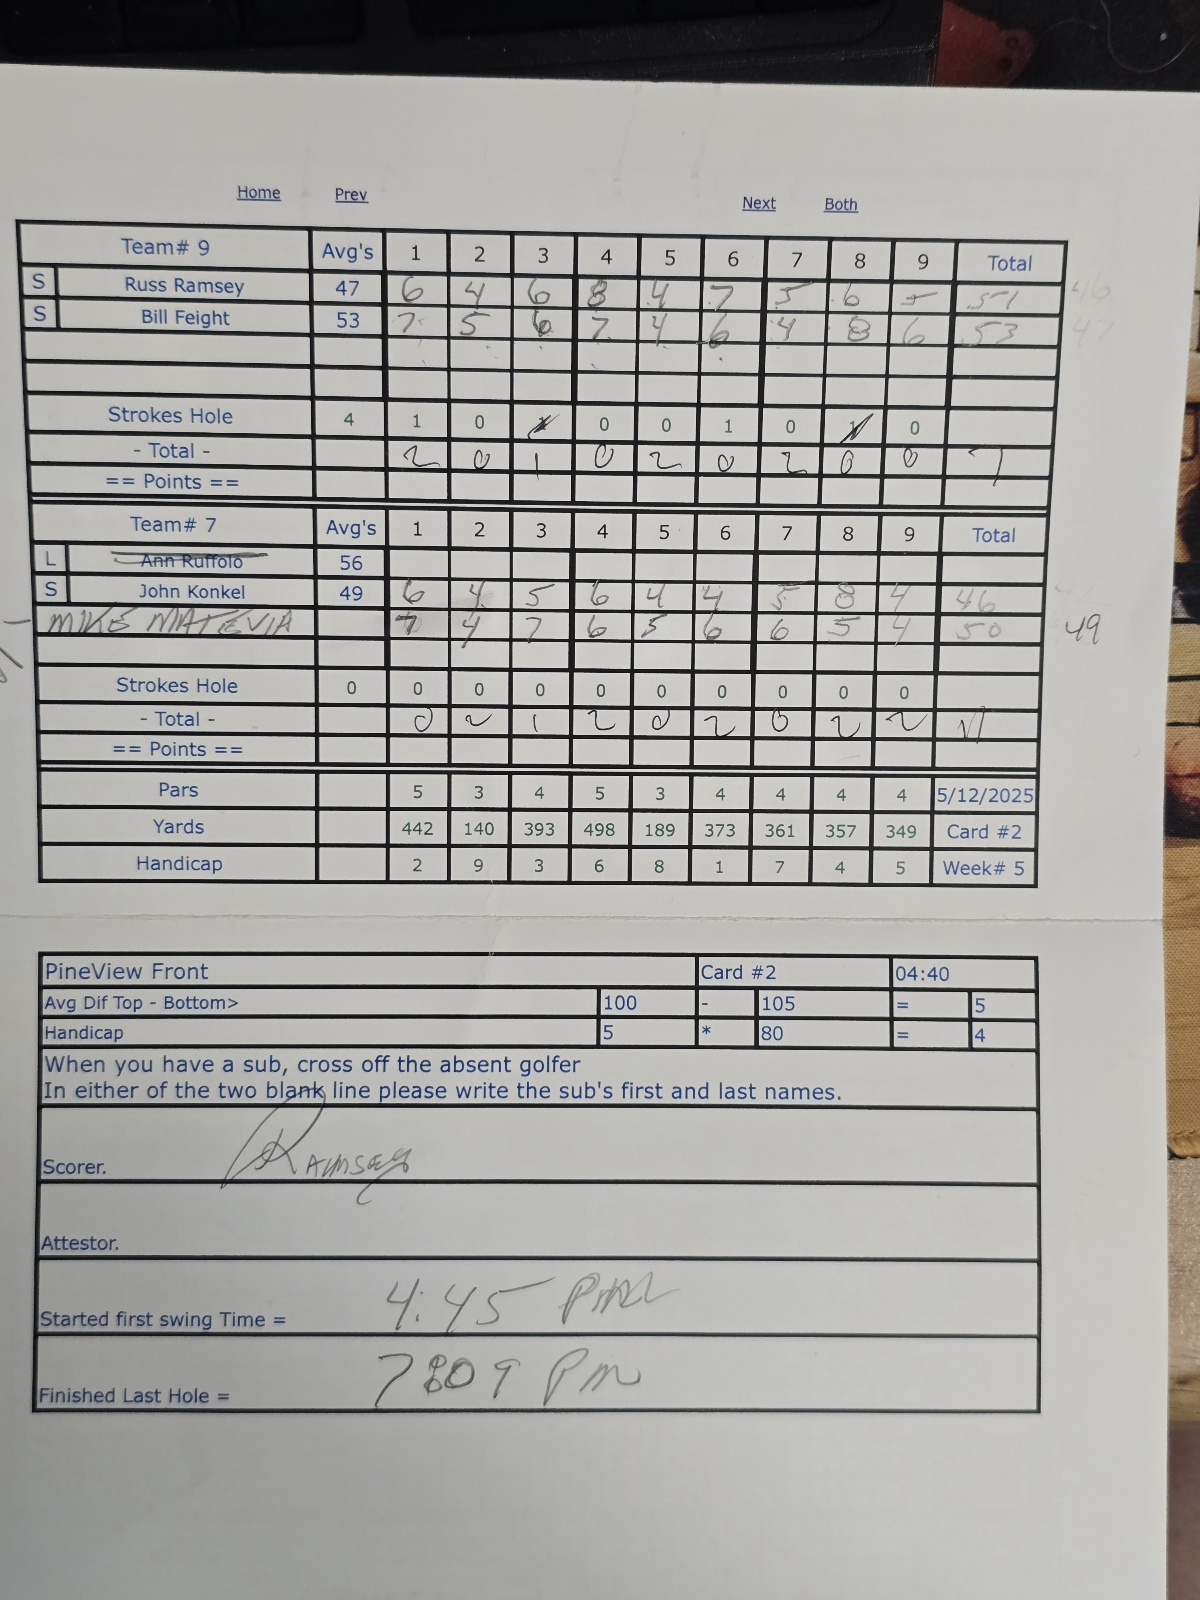 Home Prev Next Both
Team# 9 Avg's 1 2 3 4 5 6 7 8 9 Total
S Russ Ramsey 47 6 4 6 8 4 7 5 6 5 51 46
S Bill Feight 53 7 5 6 7 4 6 4 8 6 53 47
Strokes Hole 4 1 0 0 0 1 0 0
- Total - 2 0 1 0 2 0 2 0 0 7
== Points ==
Team# 7 Avg's 1 2 3 4 5 6 7 8 9 Total
L Ann Ruffolo 56
S John Konkel 49 6 4 5 6 4 4 5 8 4 46
MIKE MATEVIA 7 4 7 6 5 6 6 5 4 50 49
Strokes Hole 0 0 0 0 0 0 0 0 0 0
- Total - 0 2 1 2 0 2 0 2 2 11
== Points ==
Pars 5 3 4 5 3 4 4 4 4 5/12/2025
Yards 442 140 393 498 189 373 361 357 349 Card #2
Handicap 2 9 3 6 8 1 7 4 5 Week# 5
PineView Front Card #2 04:40
Avg Dif Top - Bottom> 100 - 105 = 5
Handicap 5 * 80 = 4
When you have a sub, cross off the absent golfer
In either of the two blank line please write the sub's first and last names.
Scorer. RAMSEY
Attestor.
Started first swing Time = 4:45 PM
Finished Last Hole = 7:09 PM